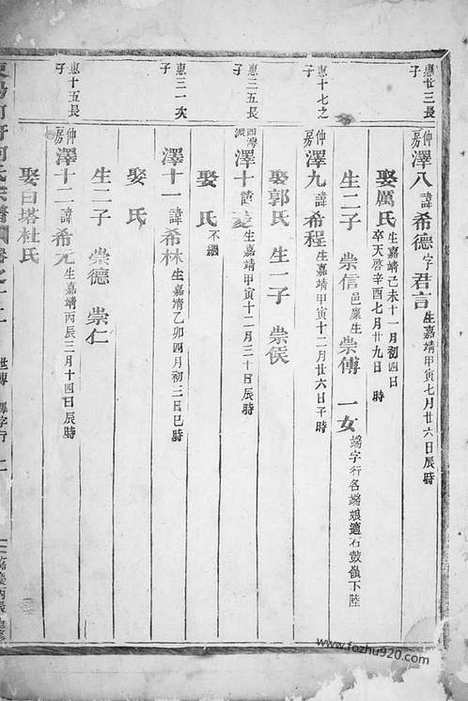 惠廿三長子
仲房 澤八 諱 希德 字 君言 生嘉靖甲寅七月廿六日辰時
娶厲氏 生嘉靖己未十一月初四日 卒天啓辛酉七月廿九日辰時
生二子 崇信 邑廩生 崇傳 一女 端字行名端娘適石鼓嶺下陸
惠十七之子
仲房 澤九 諱 希程 生嘉靖甲寅十二月廿六日子時
娶郭氏 生一子 崇俟
惠三五長子
澤十 諱 生嘉靖甲寅十二月三十日辰時
娶 氏 不繼
惠三一次子
澤十一 諱 希林 生嘉靖乙卯四月初三日巳時
娶 氏
生二子 崇德 崇仁
惠十五長子
仲房 澤十二 諱 希元 生嘉靖丙辰三月十四日辰時
娶白塔杜氏
www.fozhu920.com